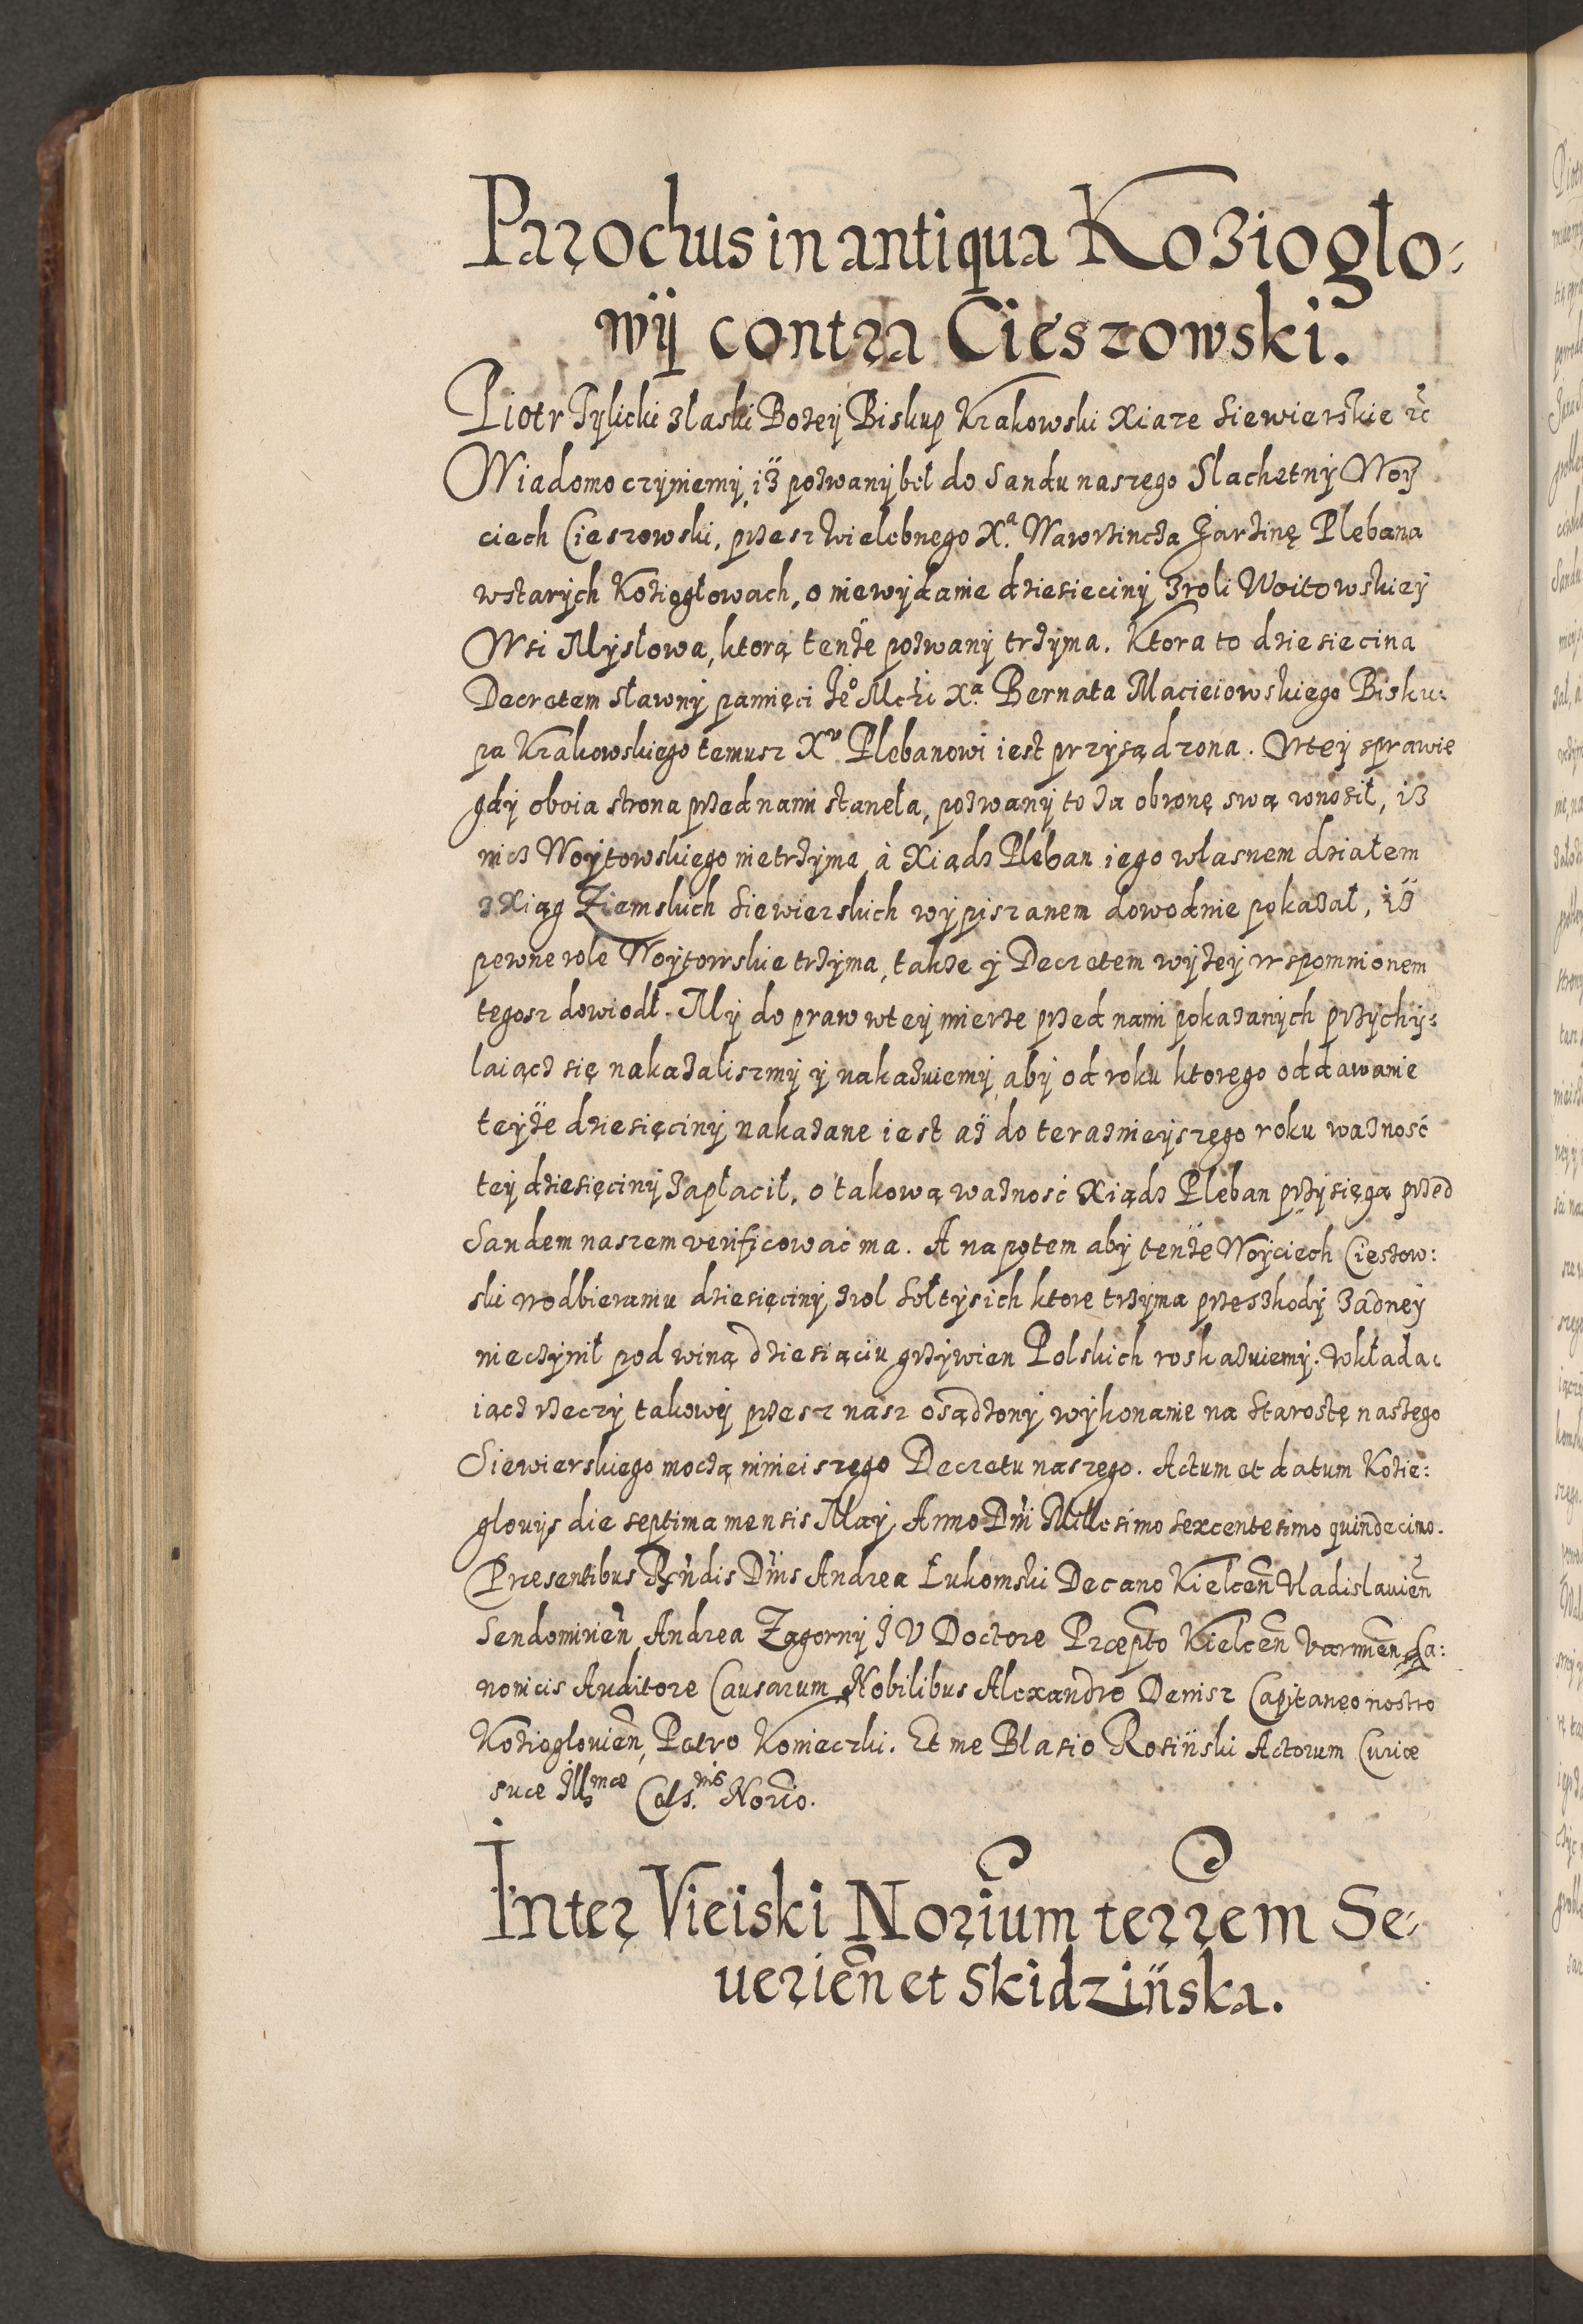 Parochus in antiqua Kozioglo-
wij contra Cieszowski.
Piotr Tylicki złaski Bożey Biskup Krakowski Xiaze Siewierskie rc
Wiadomo czyniemy iż pozwany beł do Sandu naszego Slachetny Woy
ciech Cieszowski, przesz wielebnego Xa. Wawrzincza Plebana
wstarych Koziogłowach, o niewydanie dziesieciny zroli Woitowskiey
Wsi Mysłowa, ktorą tenże pozwany trzyma. Ktora to dziesiecina
Decretem sławny pamięci Je° Mczi Xa. Bernata Macieiowskiego Bisku:
pa Krakowskiego temusz Xu. Plebanowi iest przysądzona. Wtey sprawie
gdy oboia strona przed nami staneła, pozwany to za obronę swą wnosił, iż
nicz Woytowskiego nietrzyma, à Xiądz Pleban iego własnem działem
z Xiąg Ziemskich Siewierskich wypiszanem dowodnie pokazał, iż
pewne role Woytowskie trzyma, także y Decretem wyżey wspomnionem
tegosz dowiodł. My do praw wtey mierze przed nami pokazanych przychy:
laiącz się nakazaliszmy y nakazuiemy, aby od roku ktorego oddawanie
teyże dziesięciny nakazane iest aż do teraznieyszego roku waznosć
tey dziesięciny zapłacił, o takową waznosć Xiądz Pleban przysięgą przed
Sandem naszem verificować ma. A napotem aby tenże Woyciech Cieszow:
ski wodbieraniu dziesięciny zrol Sołtysich ktore trzyma przeszkody żadney
nieczynił pod winą dziesiąciu grzywien Polskich roskazuiemy. wkłada:
iącz rzeczy takowey przesz nasz osądzony wykonanie na Starostę naszego
Siewierskiego moczą ninieiszego Decretu naszego. Actum et datum Kozie:
glovijs die septima mensis May, Anno Dni Millesimo sexcentesimo quindecimo.
Præsentibus Rndis Dnis Andrea Łukomski Decano Kielcen Vladislauien
Sendomirien, Andrea Zagorny J V Doctore Præpto Kielcen Varmien Ca:
nonicis Auditore Causarum, Nobilibus Alexandro Denisz Capitaneo nostro
Kozioglouien, Petro Konieczki. Et me Blasio Rosiński Actorum Curiæ
suæ Illmæ Cels.nis Norio.
Inter Vieiski Norium terrem Se-
uerien et Skidzińska.